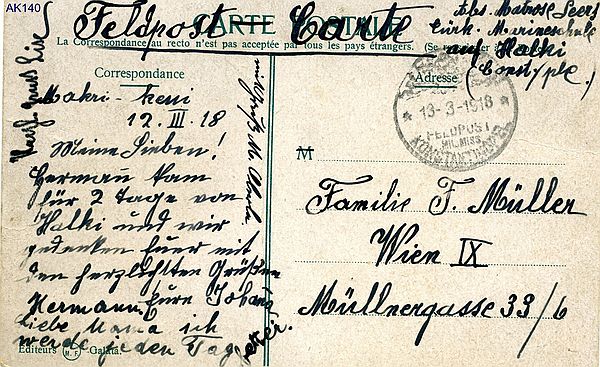 AK140
CARTE POSTALE
Feldpost-Carte
La Correspondance au recto n'est pas acceptée par tous les pays étrangers. (Se
Abs. Matrose
Türk. Marineschule
auf Halki
(Constple.)
Correspondance
Adresse
13-3-1918
FELDPOST
MIL. MISS.
KONSTANTINOPEL
Makri-Keui
12. III. 18
Meine Lieben!
Hermann kam
für 2 Tage von
Halki und wir
gedenken Euer mit
den herzlichsten Grüßen
Eure
Hermann.
liebe Mama ich
werde jeden Tag
M
Familie F. Müller
Wien IX
Müllnergasse 33/6
Editeurs M.F. Galata.